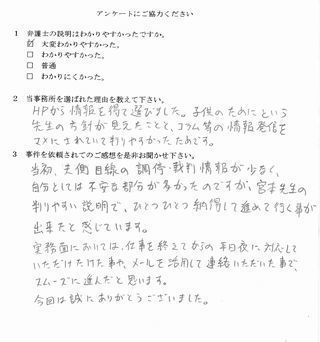 アンケートにご協力ください
1 弁護士の説明はわかりやすかったですか。
☑ 大変わかりやすかった。
□ わかりやすかった。
□ 普通
□ わかりにくかった。
2 当事務所を選ばれた理由を教えて下さい。
HPから情報を得て選びました。子供のためにという
先生の方針が見えたことと、コラム等の情報発信を
マメにされていて判りやすかったためです。
3 事件を依頼されてのご感想を是非お聞かせ下さい。
当初、夫側目線の調停・裁判情報が少なく、
自分としては不安な部分が多かったのですが、宮本先生の
判りやすい説明で、ひとつひとつ納得して進めて行く事が
出来たと感じています。
実務面においては、仕事を終えてからの平日夜に対応して
いただけた事や、メールを活用して連絡いただいた事で、
スムーズに進んだと思います。
今回は誠にありがとうございました。